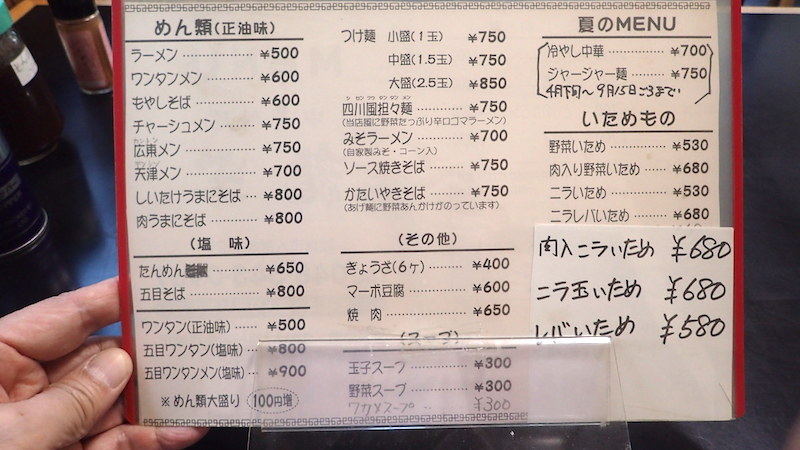 めん類(正油味)
ラーメン ¥500
ワンタンメン ¥600
もやしそば ¥600
チャーシュメン ¥750
広東メン ¥750
天津メン ¥700
しいたけうまにそば ¥800
肉うまにそば ¥800
(塩 味)
たんめん ¥650
五目そば ¥800
ワンタン(正油味) ¥500
五目ワンタン(塩味) ¥800
五目ワンタンメン(塩味) ¥900
※めん類大盛り 100円増
つけ麺 小盛(1玉) ¥750
中盛(1.5玉) ¥750
大盛(2.5玉) ¥850
四川風担々麺 ¥750
(当店風に野菜たっぷり辛口ゴマラーメン)
みそラーメン ¥700
(自家製みそ・コーン入)
ソース焼きそば ¥750
かたいやきそば ¥750
(あげ麺に野菜あんかけがのっています)
(その他)
ぎょうざ(6ヶ) ¥400
マーボ豆腐 ¥600
焼 肉 ¥650
(スープ)
玉子スープ ¥300
野菜スープ ¥300
ワカメスープ ¥300
夏のMENU
冷やし中華 ¥700
ジャージャー麺 ¥750
4月下旬〜9月15日ごろまで
いためもの
野菜いため ¥530
肉入り野菜いため ¥680
ニラいため ¥530
ニラレバいため ¥680
肉入ニラいため ¥680
ニラ玉いため ¥680
レバいため ¥580